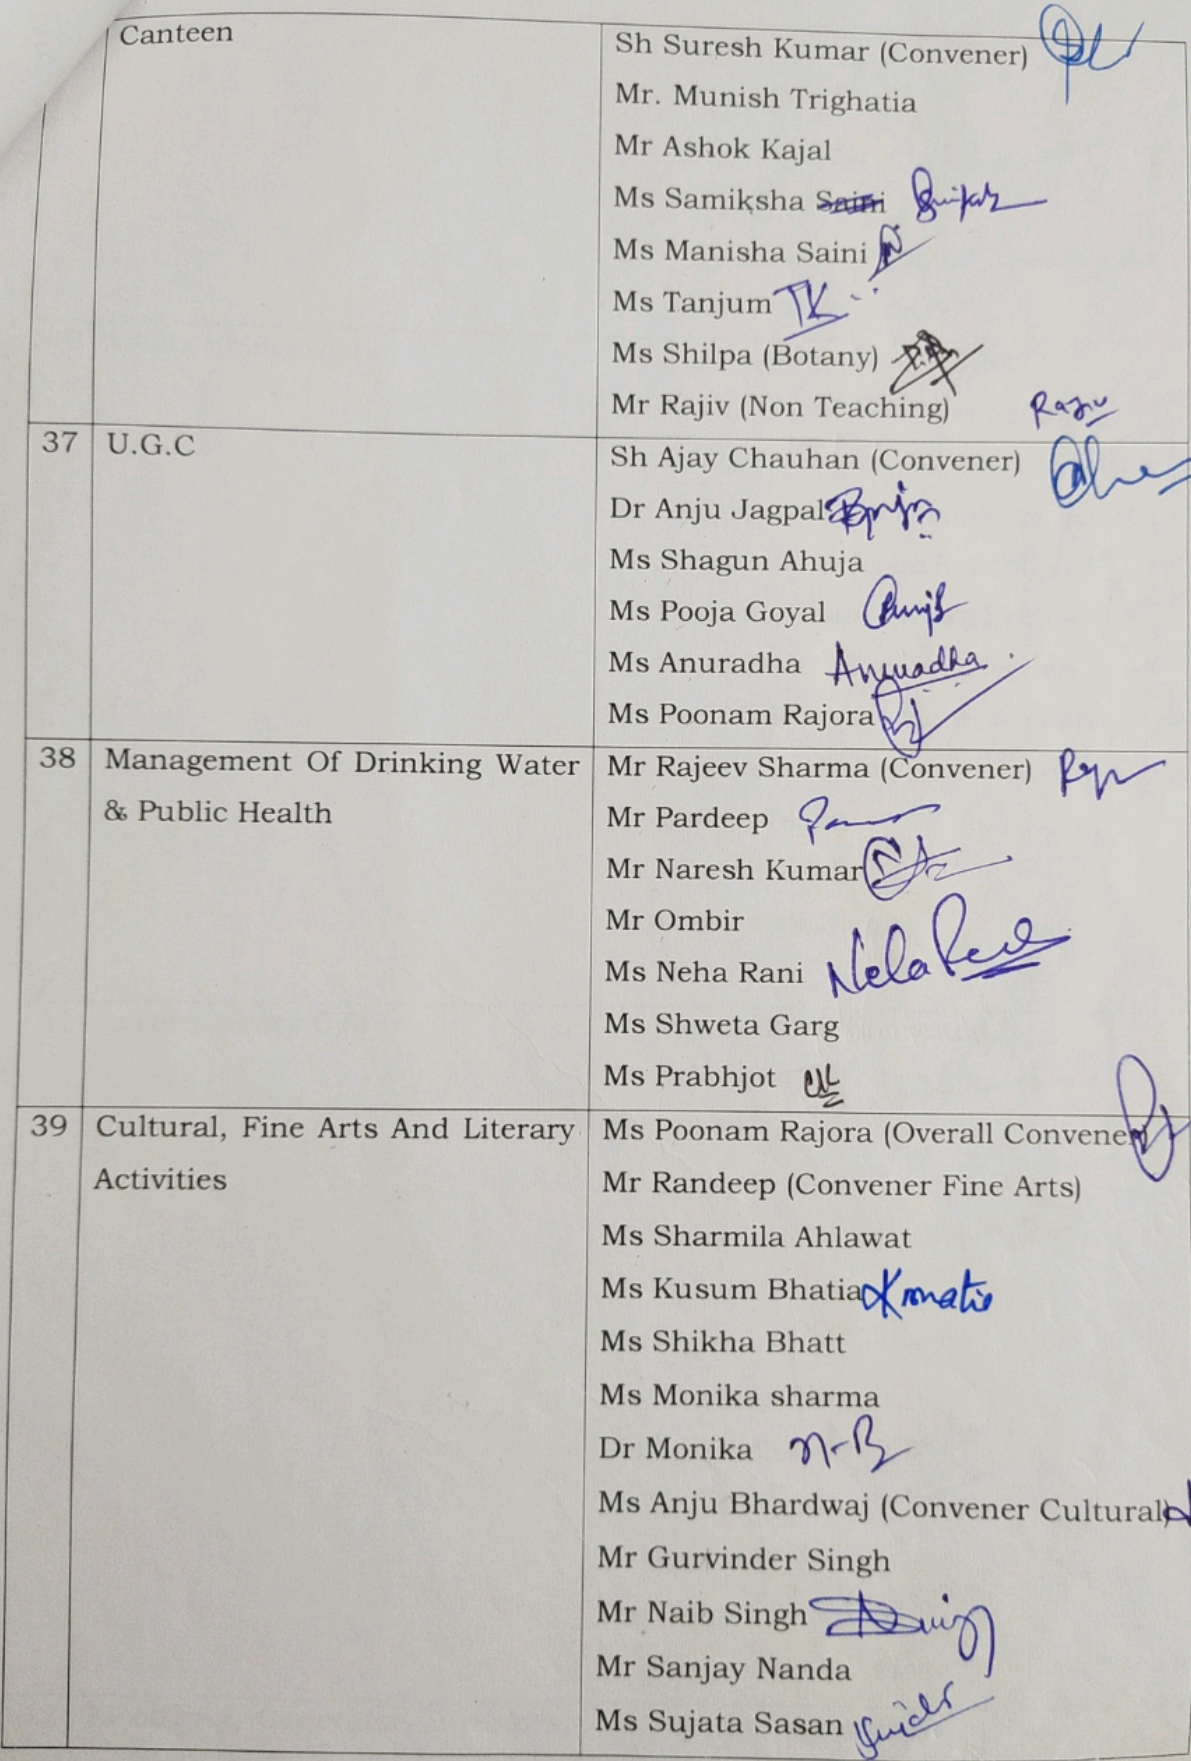 Canteen
Sh Suresh Kumar (Convener)
Mr. Munish Trighatia
Mr Ashok Kajal
Ms Samiksha Saini
Ms Manisha Saini
Ms Tanjum TK
Ms Shilpa (Botany)
Mr Rajiv (Non Teaching) Rajiv
37 U.G.C
Sh Ajay Chauhan (Convener)
Dr Anju Jagpal
Ms Shagun Ahuja
Ms Pooja Goyal
Ms Anuradha Anuradha
Ms Poonam Rajora
38 Management Of Drinking Water
& Public Health
Mr Rajeev Sharma (Convener)
Mr Pardeep
Mr Naresh Kumar
Mr Ombir
Ms Neha Rani
Ms Shweta Garg
Ms Prabhjot
39 Cultural, Fine Arts And Literary
Activities
Ms Poonam Rajora (Overall Convener)
Mr Randeep (Convener Fine Arts)
Ms Sharmila Ahlawat
Ms Kusum Bhatia
Ms Shikha Bhatt
Ms Monika sharma
Dr Monika
Ms Anju Bhardwaj (Convener Cultural)
Mr Gurvinder Singh
Mr Naib Singh
Mr Sanjay Nanda
Ms Sujata Sasan